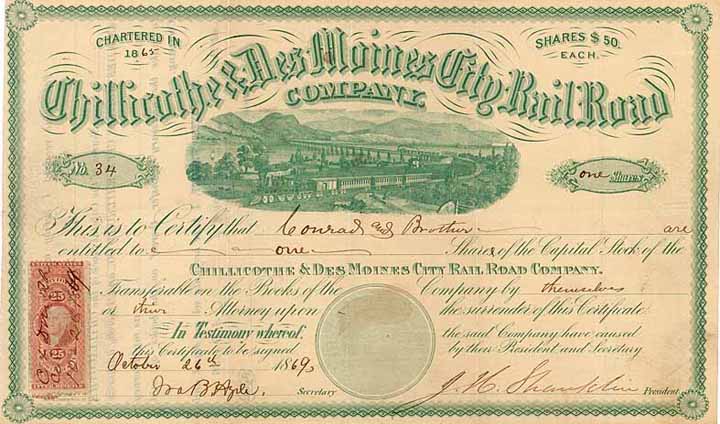 CHARTERED IN
1865
SHARES $50.
EACH.
Chillicothe & Des Moines City Rail Road
COMPANY.
No. 34
one Shares
This is to Certify that Conrad and Brother are
entitled to one Shares of the Capital Stock of the
CHILLICOTHE & DES MOINES CITY RAIL ROAD COMPANY.
Transferable on the Books of the Company by themselves
or their Attorney upon the surrender of this Certificate.
In Testimony whereof, the said Company have caused
this Certificate to be signed by their President and Secretary
October 26th 1869
Secretary
J. H. Shanklin President
25 25